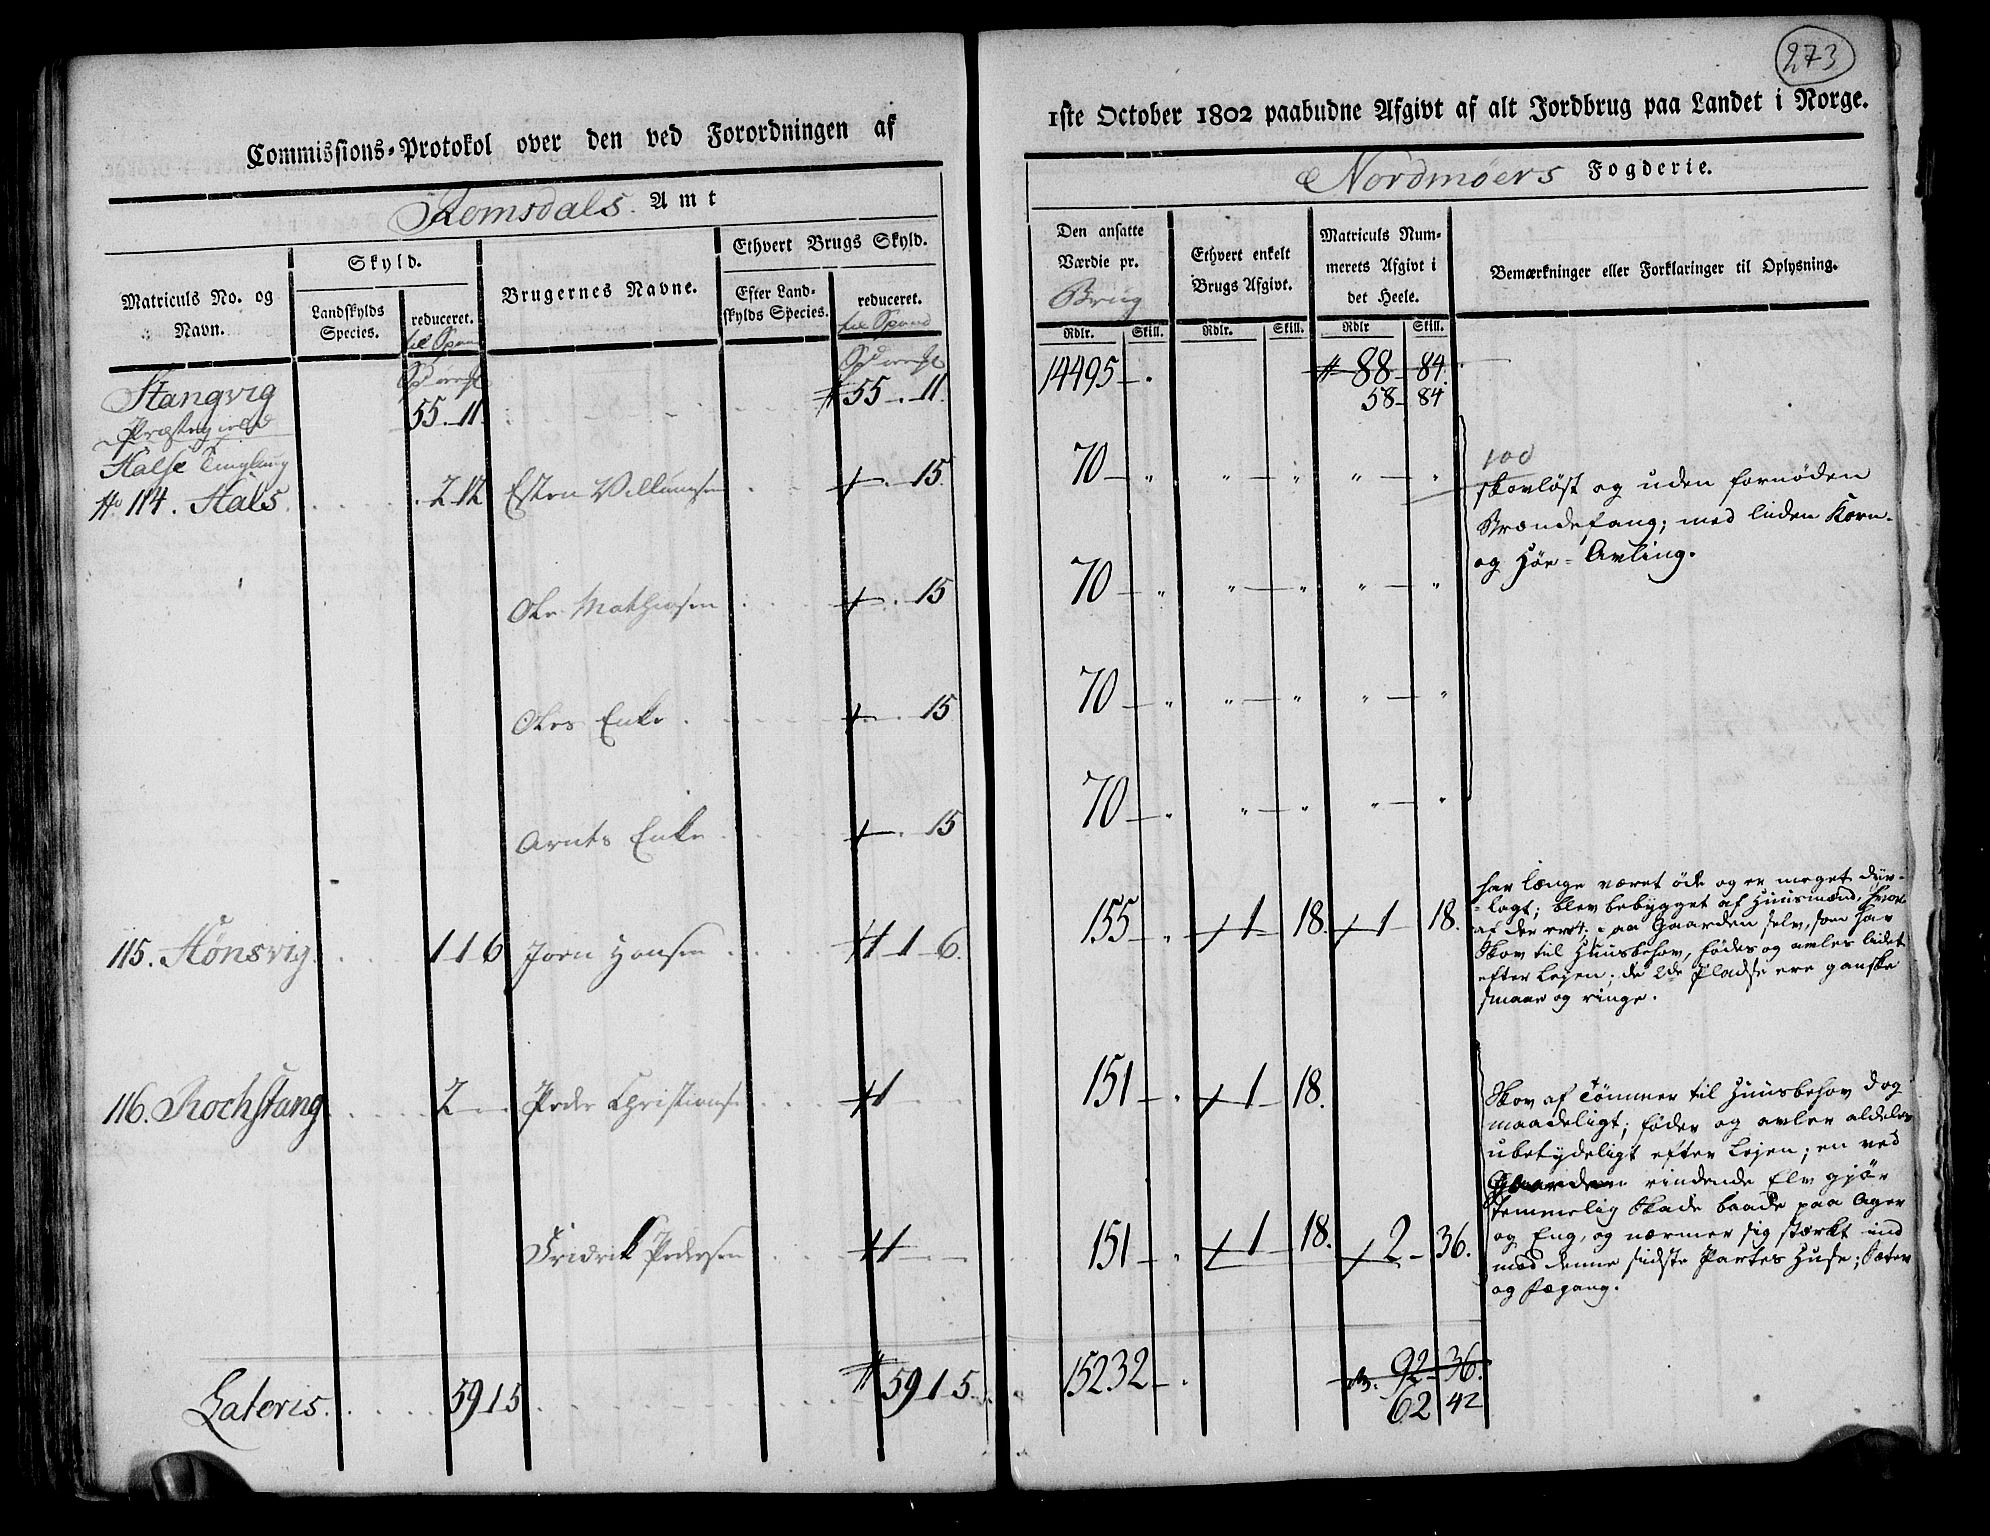 273
Commissions-Protokol over den ved Forordningen af
1ste October 1802 paabudne Afgivt af alt Jordbrug paa Landet i Norge.
Romsdals Amt
Nordmøers Fogderie.
Matriculs No. og Navn.
Skyld.
Landskylds Species.
reduceret. til Spand
Brugernes Navne.
Ethvert Brugs Skyld.
Efter Landskylds Species.
reduceret. til Spand
Den ansatte Værdie pr. Brug
Rdlr. Skill.
Ethvert enkelt Brugs Afgivt.
Rdlr. Skill.
Matriculs Nummerets Afgivt i det Heele.
Rdlr Skill.
Bemærkninger eller Forklaringer til Oplysning.
Stangvig 55. 11. 55. 11. 14495 88 84.
Præstegield 58 84
Halse Tinglaug
No 114. Hals. 2 12 Esten 15. 70 " " " " "
100
skovløst og uden fornøden
Brændefang; med liden Korn-
og Høe-Avling.
Ole Mathiasen 15 70 " " " " "
Oles Enke 15 70 " " " " "
Arnts Enke 15 70 " " " " "
115. Hønsvig. 1 1 6 Jorn Hansen 1 6. 155 1 18. 1 18.
har længe været øde og er meget dyr-
lagt; blev bebygget af Huusmænd, hvor-
af der paa Gaarden selv, som har
Skov til Huusbehov, fødes og avles lidet
efter Lejen; de 2de Pladse ere ganske
smaae og ringe.
116. Rochstang 2 Peder Christians 1 151 1 18.
Skov af Tømmer til Huusbehov dog
maadeligt; føder og avler aldeles
ubetydeligt efter Lejen; en ved
Gaarden rindende Elv gjør
temmelig Skade baade paa Ager
og Eng, og nærmer sig stærkt ind
mod denne sidste Partes Huse; Sæter
og Fægang.
Fridrik Pedersen 1 151 1 18. 2 36.
Lateris. 59 1 5 59 1 5. 15232 92 36.
62 42